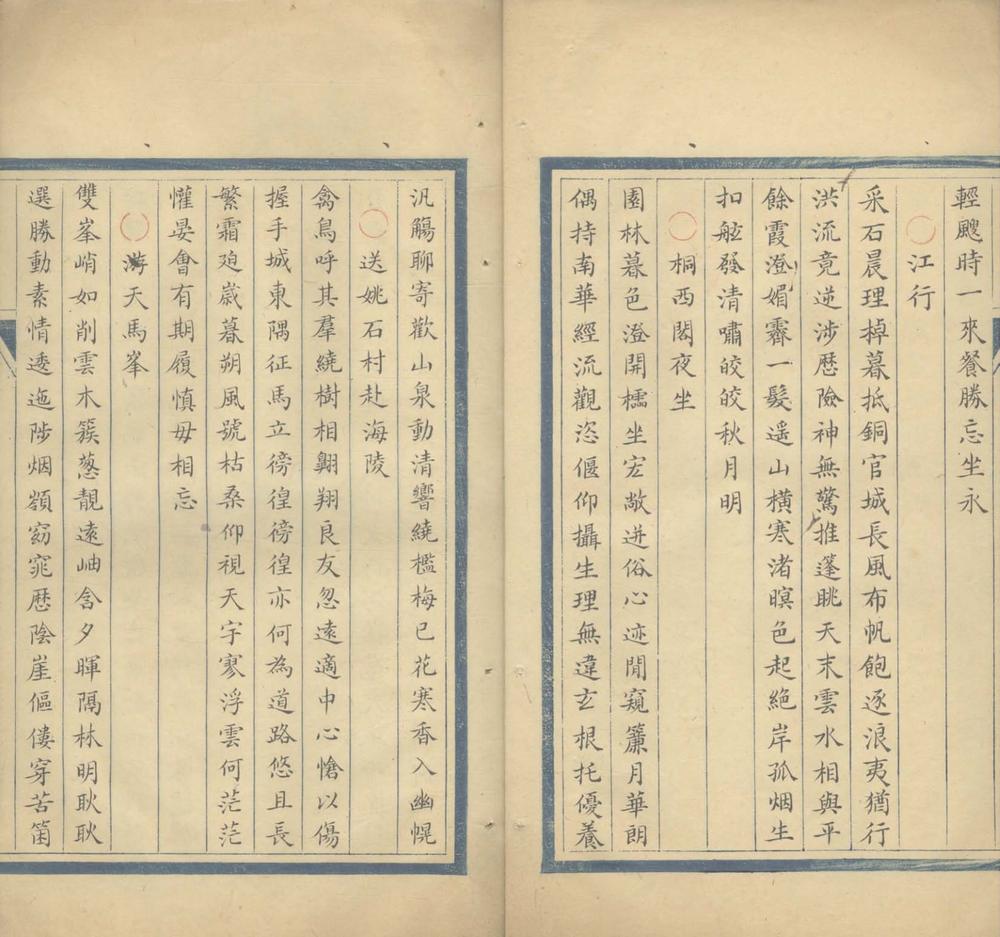 輕颸時一來餐勝忘坐永
江行
采石晨理棹暮抵銅官城長風布帆飽逐浪夷猶行
洪流竟逆涉歷險神無驚推蓬眺天末雲水相與平
餘霞澄媚霽一髮遥山橫寒渚暝色起絕岸孤烟生
扣舷發清嘯皎皎秋月明
桐西閣夜坐
園林暮色澄開櫺坐宏敞迸俗心迹閒窺簾月華朗
偶持南華經流觀恣偃仰攝生理無違玄根托優養
汎觴聊寄歡山泉動清響繞檻梅已花寒香入幽幌
送姚石村赴海陵
禽鳥呼其羣繞樹相翺翔良友忽遠適中心愴以傷
握手城東隅征馬立徬徨徬徨亦何為道路悠且長
繁霜迫歲暮朔風號枯桑仰視天宇寥浮雲何茫茫
懽晏會有期履慎毋相忘
游天馬峯
雙峯峭如削雲木簇葱靚遠岫含夕暉隔林明耿耿
選勝動素情逶迤陟烟嶺窈窕歷陰崖傴僂穿苦箘